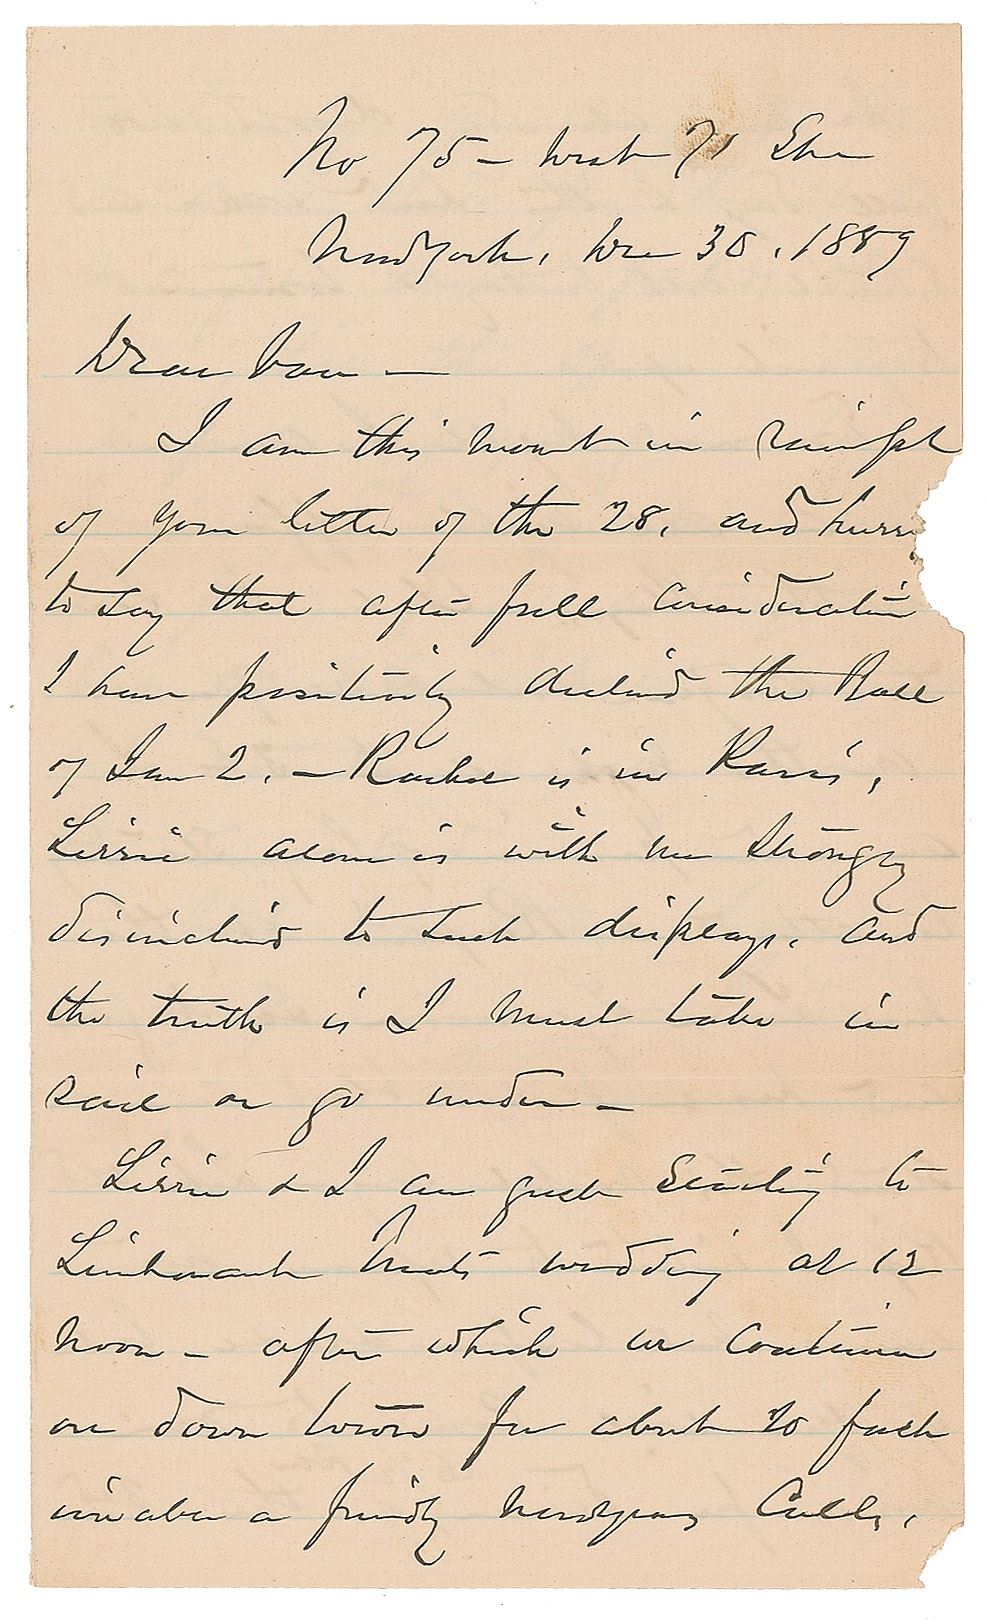 No 75 - West 71 Str
New York, Dec 30, 1889
Dear Van -
I am this moment in receipt
of your letter of the 28, and hurry
to say that after full consideration
I have positively declined the Ball
of Jan 2. - Rachel is in Paris,
Lizzie alone is with me strongly
disinclined to such displays, and
the truth is I must take in
sail or go under -
Lizzie & I are just starting to
Lieutenant wedding at 12
noon - after which we continue
on down town for about 20 
a friendly New Years Calls,